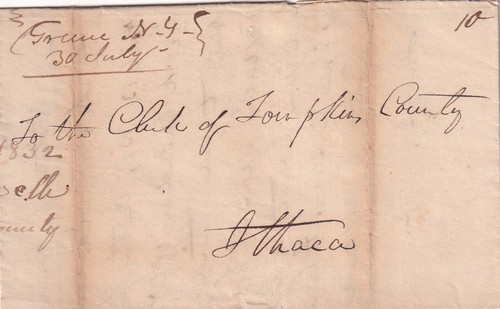 Greene N.Y
30 July
10
To the Clerk of Tompkins County
1832
Ithaca